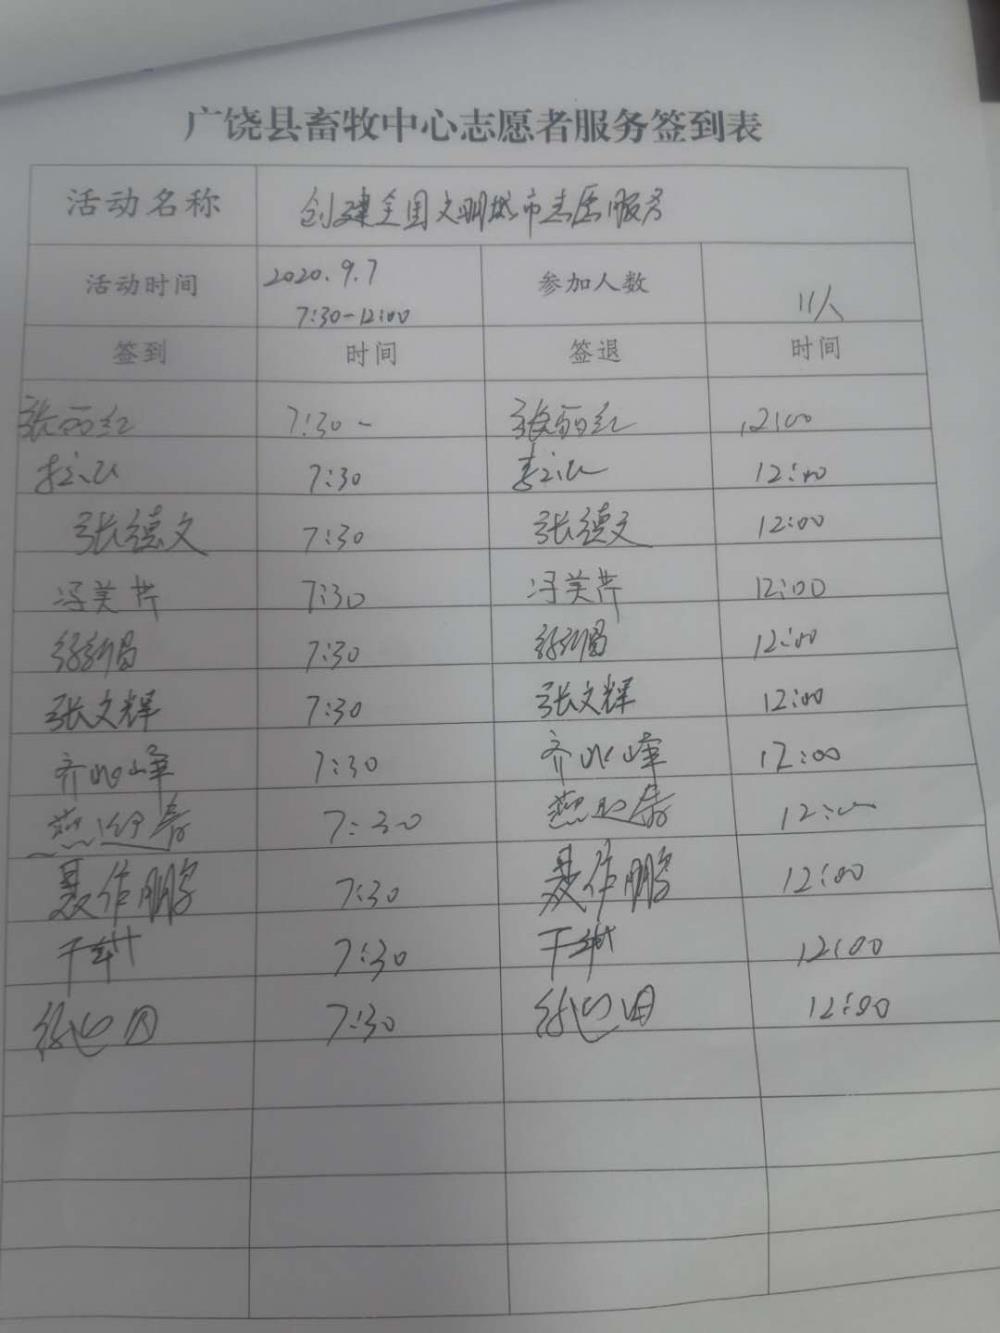 广饶县畜牧中心志愿者服务签到表
活动名称 创建全国文明城市志愿服务
活动时间 2020.9.7 7:30-12:00 参加人数 11人
签到 时间 签退 时间
张丽红 7:30- 张丽红 12:00
7:30 12:00
张德文 7:30 张德文 12:00
冯美芹 7:30 冯美芹 12:00
7:30 12:00
张文辉 7:30 张文辉 12:00
齐 峰 7:30 齐 峰 12:00
燕 春 7:30 燕 春 12:00
聂作鹏 7:30 聂作鹏 12:00
7:30 12:00
7:30 12:00